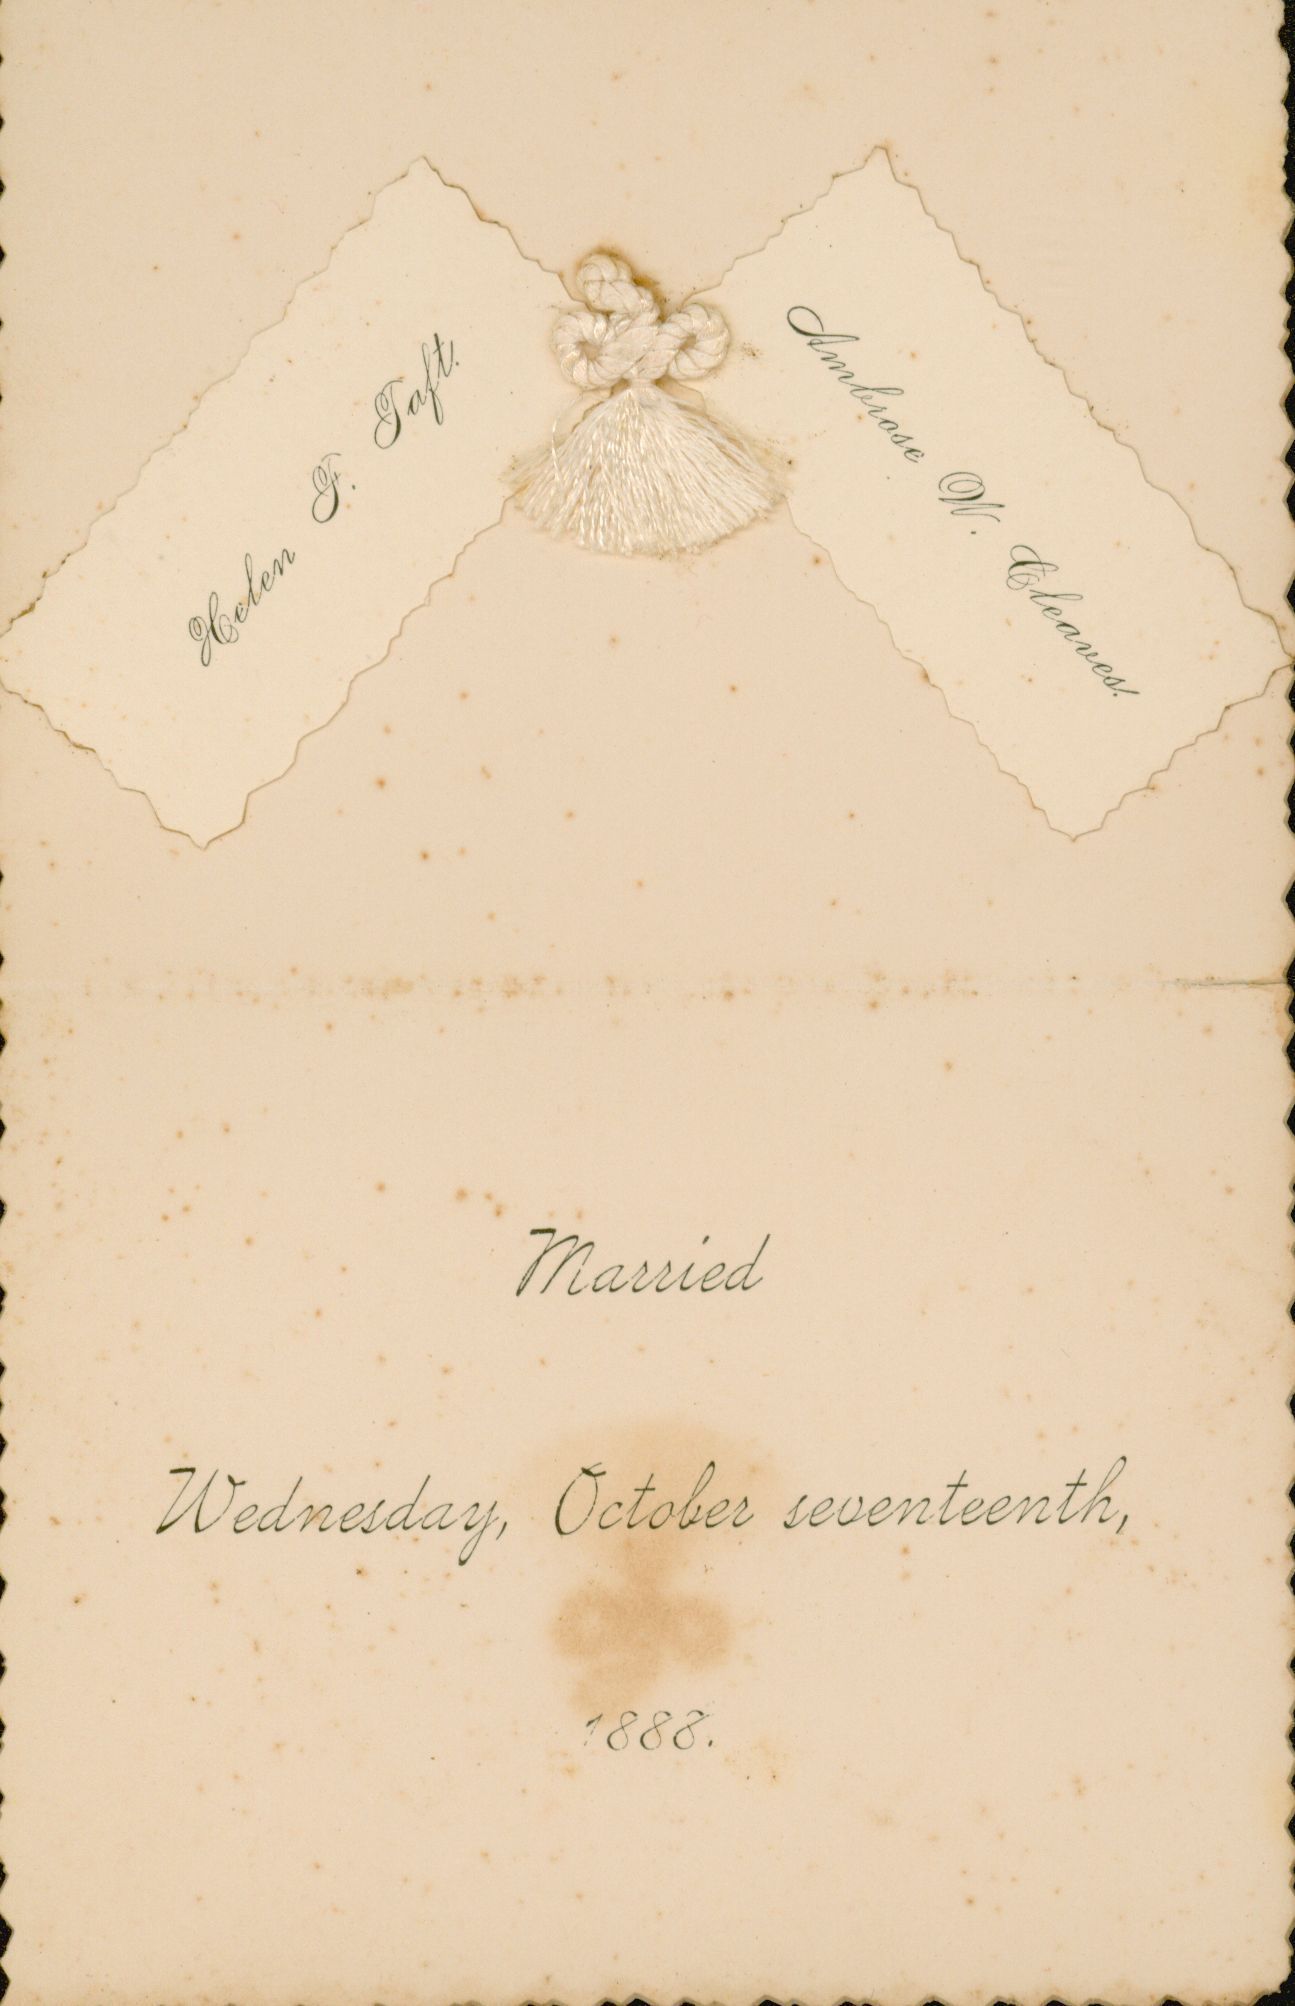 Helen F. Taft.
Ambrose W. Cleaves.
Married
Wednesday, October seventeenth,
1888.